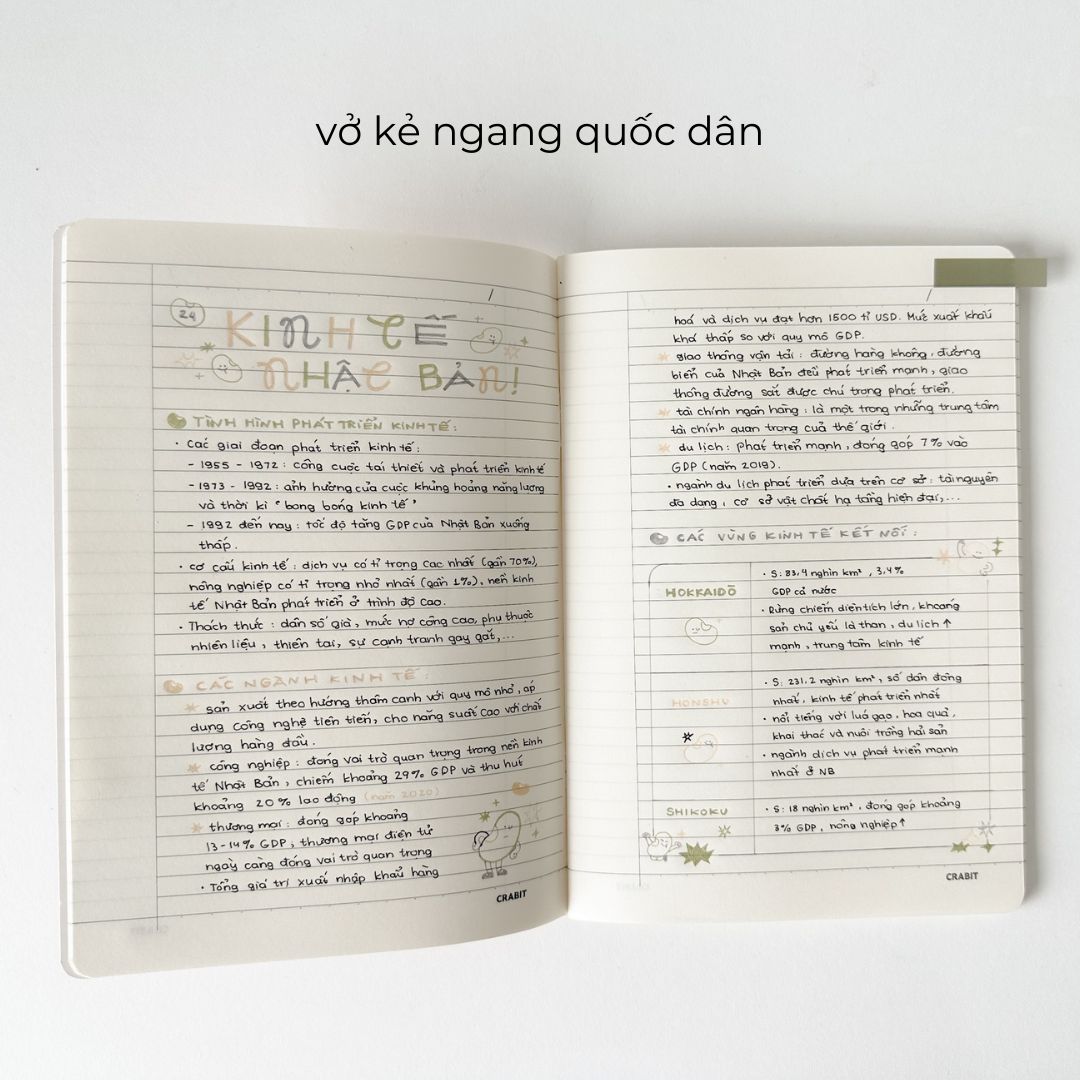 vở kẻ ngang quốc dân
24
KINH TẾ
NHẬT BẢN!
TÌNH HÌNH PHÁT TRIỂN KINH TẾ:
• Các giai đoạn phát triển kinh tế:
- 1955 - 1972: công cuộc tái thiết và phát triển kinh tế
- 1973 - 1992: ảnh hưởng của cuộc khủng hoảng năng lượng
và thời kì "bong bóng kinh tế"
- 1992 đến nay: tốc độ tăng GDP của Nhật Bản xuống
thấp.
• cơ cấu kinh tế: dịch vụ có tỉ trọng cao nhất (gần 70%),
nông nghiệp có tỉ trọng nhỏ nhất (gần 1%), nền kinh
tế Nhật Bản phát triển ở trình độ cao.
• Thách thức: dân số già, mức nợ công cao, phụ thuộc
nhiên liệu, thiên tai, sự cạnh tranh gay gắt,...
CÁC NGÀNH KINH TẾ:
sản xuất theo hướng thâm canh với quy mô nhỏ, áp
dụng công nghệ tiên tiến, cho năng suất cao với chất
lượng hàng đầu.
công nghiệp: đóng vai trò quan trọng trong nền kinh
tế Nhật Bản, chiếm khoảng 29% GDP và thu hút
khoảng 20% lao động (năm 2020)
thương mại: đóng góp khoảng
13-14% GDP, thương mại điện tử
ngày càng đóng vai trò quan trọng
• Tổng giá trị xuất nhập khẩu hàng
CRABIT
hoá và dịch vụ đạt hơn 1500 tỉ USD. Mức xuất khẩu
khá thấp so với quy mô GDP.
giao thông vận tải: đường hàng không, đường
biển của Nhật Bản đều phát triển mạnh, giao
thông đường sắt được chú trọng phát triển.
tài chính ngân hàng: là một trong những trung tâm
tài chính quan trọng của thế giới.
du lịch: phát triển mạnh, đóng góp 7% vào
GDP (năm 2019).
• ngành du lịch phát triển dựa trên cơ sở: tài nguyên
đa dạng, cơ sở vật chất hạ tầng hiện đại,...
CÁC VÙNG KINH TẾ KẾT NỐI:
HOKKAIDŌ
• S: 83,4 nghìn km², 3,4%
GDP cả nước
• Rừng chiếm diện tích lớn, khoáng
sản chủ yếu là than, du lịch ↑
mạnh, trung tâm kinh tế
HONSHU
• S: 231,2 nghìn km², số dân đông
nhất, kinh tế phát triển nhất
• nổi tiếng với lúa gạo, hoa quả,
khai thác và nuôi trồng hải sản
• ngành dịch vụ phát triển mạnh
nhất ở NB
SHIKOKU
• S: 18 nghìn km², đóng góp khoảng
3% GDP, nông nghiệp ↑
CRABIT